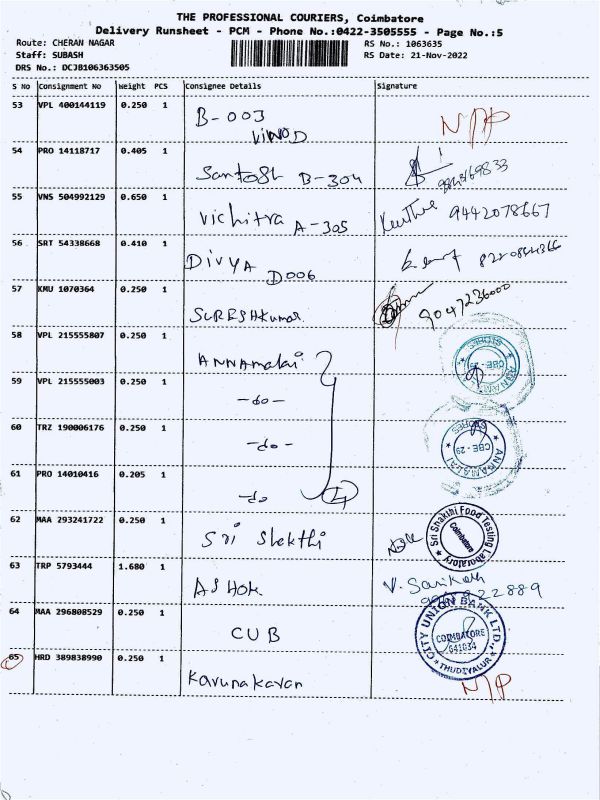 THE PROFESSIONAL COURIERS, Coimbatore
Delivery Runsheet - PCM - Phone No.:0422-3505555 - Page No.:5
Route: CHERAN NAGAR RS No.: 1063635
Staff: SUBASH RS Date: 21-Nov-2022
DRS No.: DCJB106363505
S No Consignment No Weight PCS Consignee Details Signature
53 VPL 400144119 0.250 1 B-003
VINOD N/P
54 PRO 14118717 0.405 1
Santosh B-304
55 VNS 504992129 0.650 1 Vichitra A-305 9442078667
56 SRT 54338668 0.410 1 DIVYA D006
57 KMU 1070364 0.250 1 SURESHKumar 9047236000
58 VPL 215555807 0.250 1 ANNAmalai
59 VPL 215555003 0.250 1 -do-
60 TRZ 190006176 0.250 1 -do-
ANNAMALAI STORES CBE-29
61 PRO 14010416 0.205 1 -do 4
62 MAA 293241722 0.250 1 Sri Shakthi
Sri Shakthi Food Testing Laboratory Coimbatore
63 TRP 5793444 1.680 1 ASHOK
64 MAA 296808529 0.250 1 CUB
CITY UNION BANK LTD., COIMBATORE 641034 THUDIYALUR
65 HRD 389838990 0.250 1 Karunakaran N/P